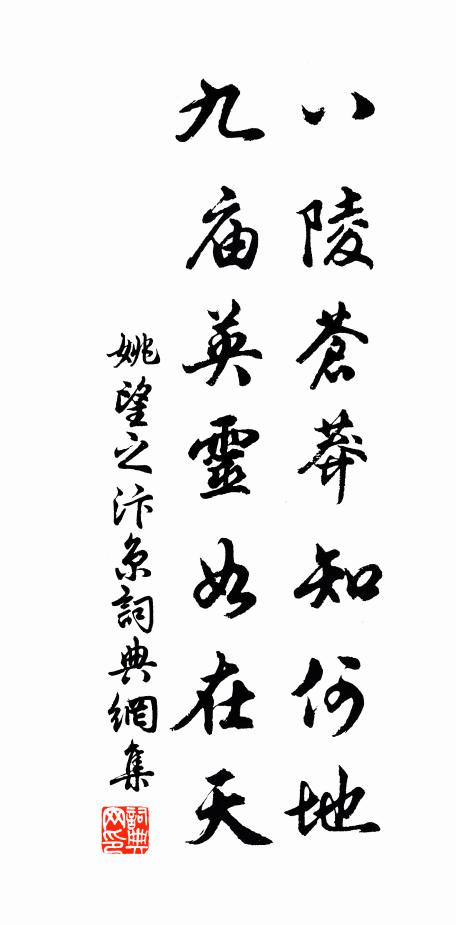 八陵蒼莽知何地
九庙英靈如在天
姚望之汴京詞典網集
詞典網印